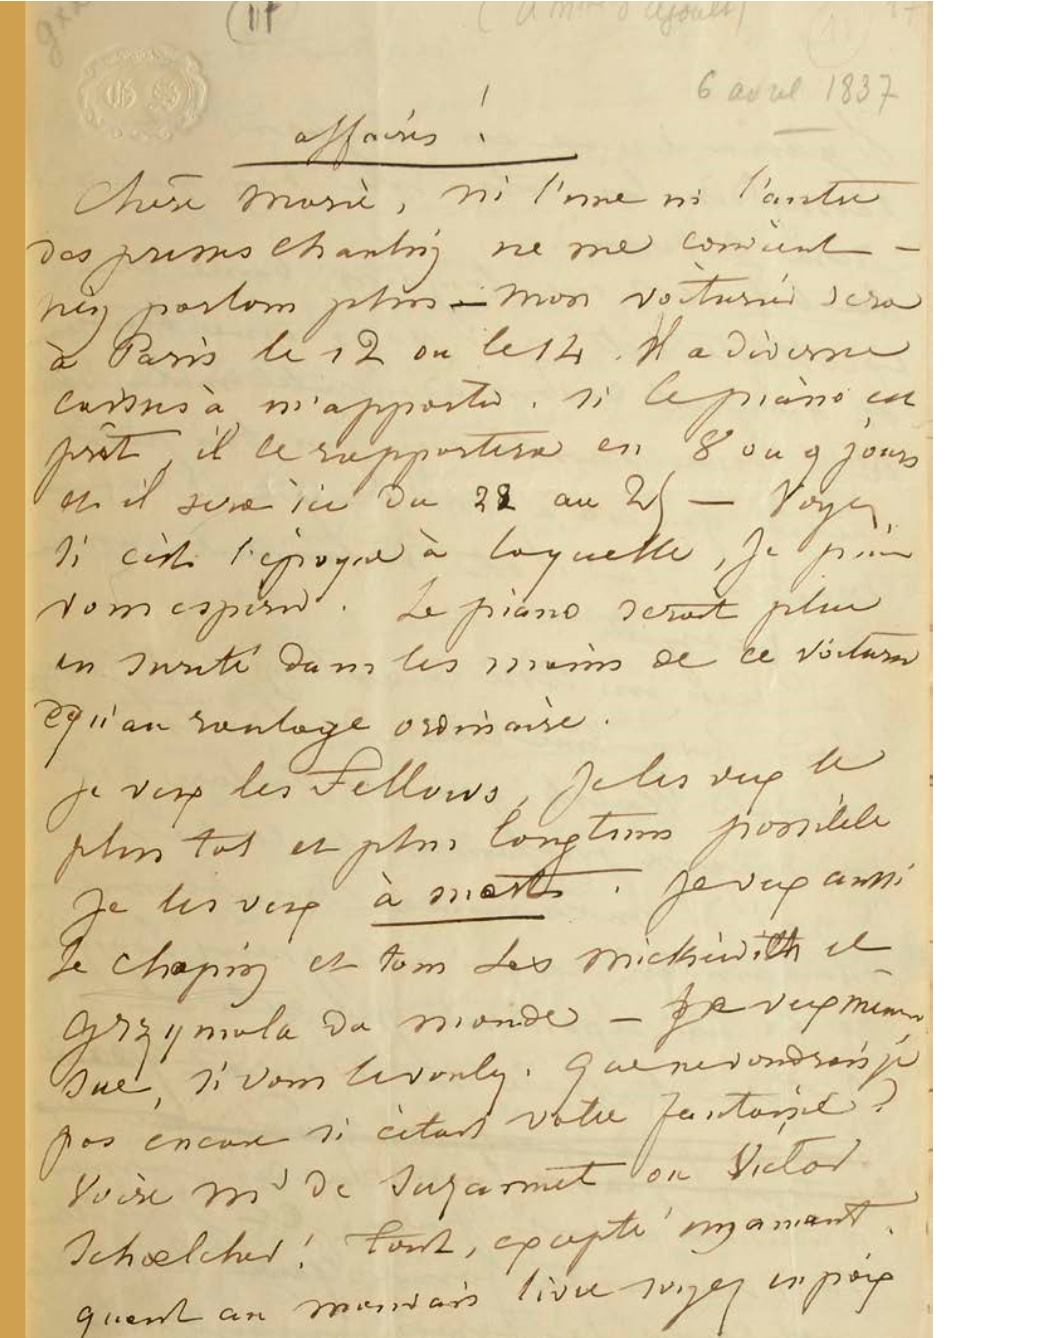 (11
(à Mme d'Agoult)
6 avril 1837
affaires !
Chère Marie, ni l'une ni l'autre
des primes Chantin ne me convient —
n'en parlons plus — mon voiturier sera
à Paris le 12 ou le 14. Il a diverses
caisses à m'apporter. si le piano est
prêt, il le rapportera en 8 ou 9 jours
et il sera ici du 22 au 25 — Voyez
si c'est l'époque à laquelle, je puis
vous espérer. Le piano serait plus
en sureté dans les mains de ce voiturier
qu'au roulage ordinaire.
je veux les Fellows, je les veux le
plus tot et plus longtems possible
Je les veux à mort. Je veux aussi
le Chopin et tous les Mickiewith et
Grzymala du monde — je veux même
Sue, si vous le voulez. Que ne voudrais-je
pas encore si c'était votre fantaisie ?
Voire Mr de Suzannet ou Victor
Schoelcher ! Tout, excepté un amant.
quant au mauvais livre soyez en paix